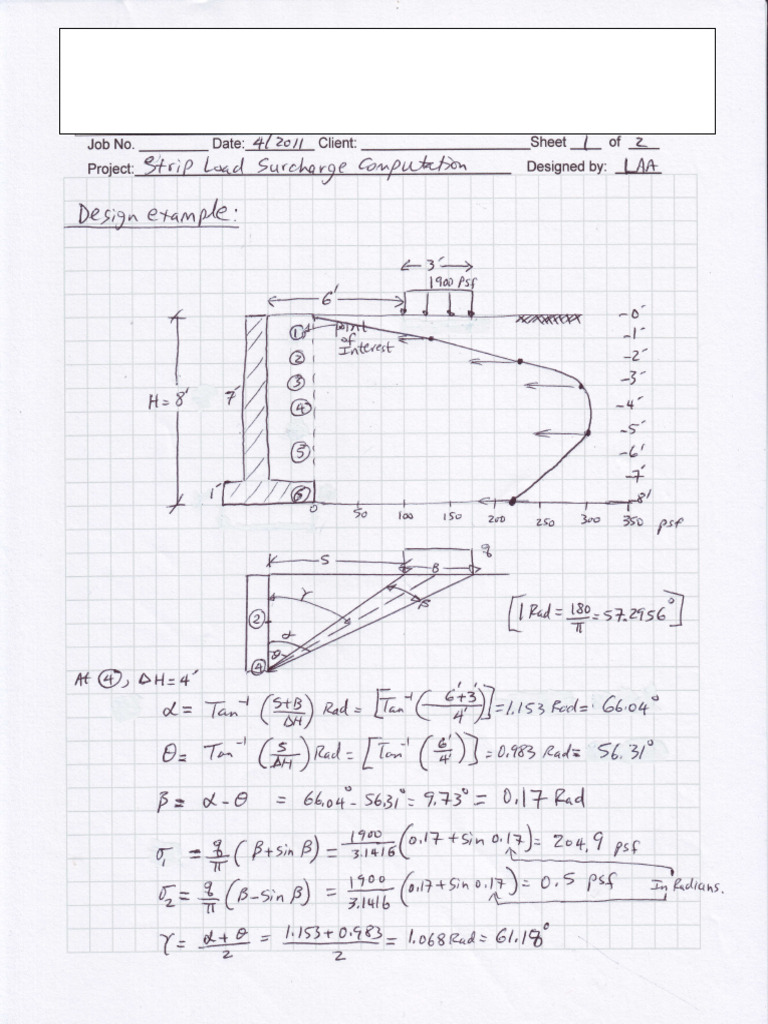 Job No. Date: 4/2011 Client: Sheet 1 of 2
Project: Strip Load Surcharge Computation Designed by: LAA
Design example:
3'
1900 psf
6'
-0'
① point of Interest
-1'
②
-2'
③
-3'
H=8' 7' ④
-4'
⑤
-5'
-6'
-7'
1' ⑥
-8'
0 50 100 150 200 250 300 350 psf
S B q
γ β
②
α
θ
④
[1 Rad = 180/π = 57.2956°]
At ④, ΔH=4'
α = Tan⁻¹ (S+B/ΔH) Rad = [Tan⁻¹ (6'+3'/4')] = 1.153 Rad = 66.04°
θ = Tan⁻¹ (S/ΔH) Rad = [Tan⁻¹ (6'/4')] = 0.983 Rad = 56.31°
β = α - θ = 66.04° - 56.31° = 9.73° = 0.17 Rad
σ₁ = q/π (β + sin β) = 1900/3.1416 (0.17 + sin 0.17) = 204.9 psf
σ₂ = q/π (β - sin β) = 1900/3.1416 (0.17 + sin 0.17) = 0.5 psf In Radians.
γ = α + θ/2 = 1.153 + 0.983/2 = 1.068 Rad = 61.18°